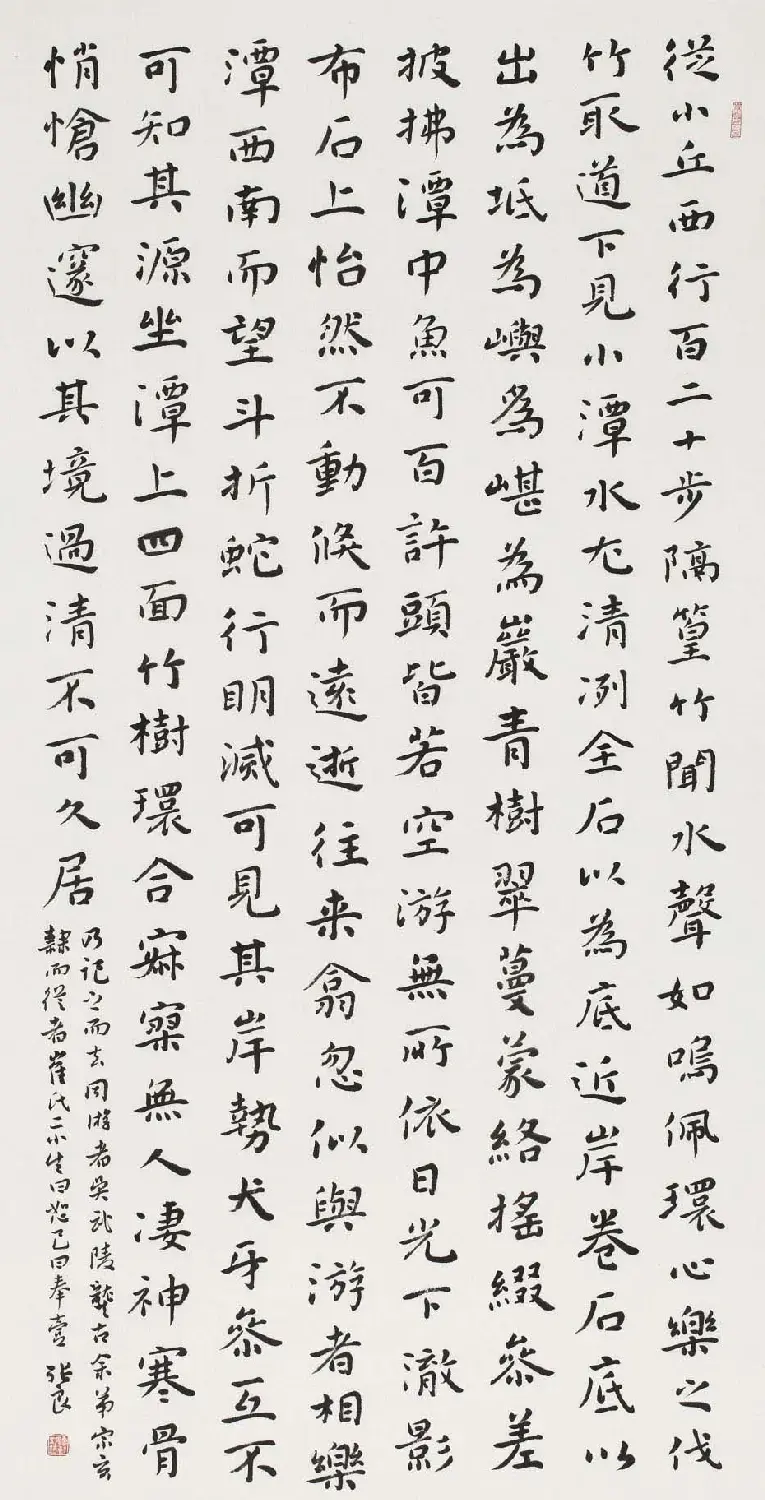 從小丘西行百二十步隔篁竹聞水聲如鳴佩環心樂之伐
竹取道下見小潭水尤清冽全石以為底近岸卷石底以
出為坻為嶼為嵁為巖青樹翠蔓蒙絡搖綴參差
披拂潭中魚可百許頭皆若空游無所依日光下澈影
布石上怡然不動俶而遠逝往来翕忽似與游者相樂
潭西南而望斗折蛇行明滅可見其岸勢犬牙參互不
可知其源坐潭上四面竹樹環合寂寥無人凄神寒骨
悄愴幽邃以其境過清不可久居
乃記之而去同游者吳武陵龔古余弟宗玄
隸而從者崔氏二小生曰恕己曰奉壹 張良